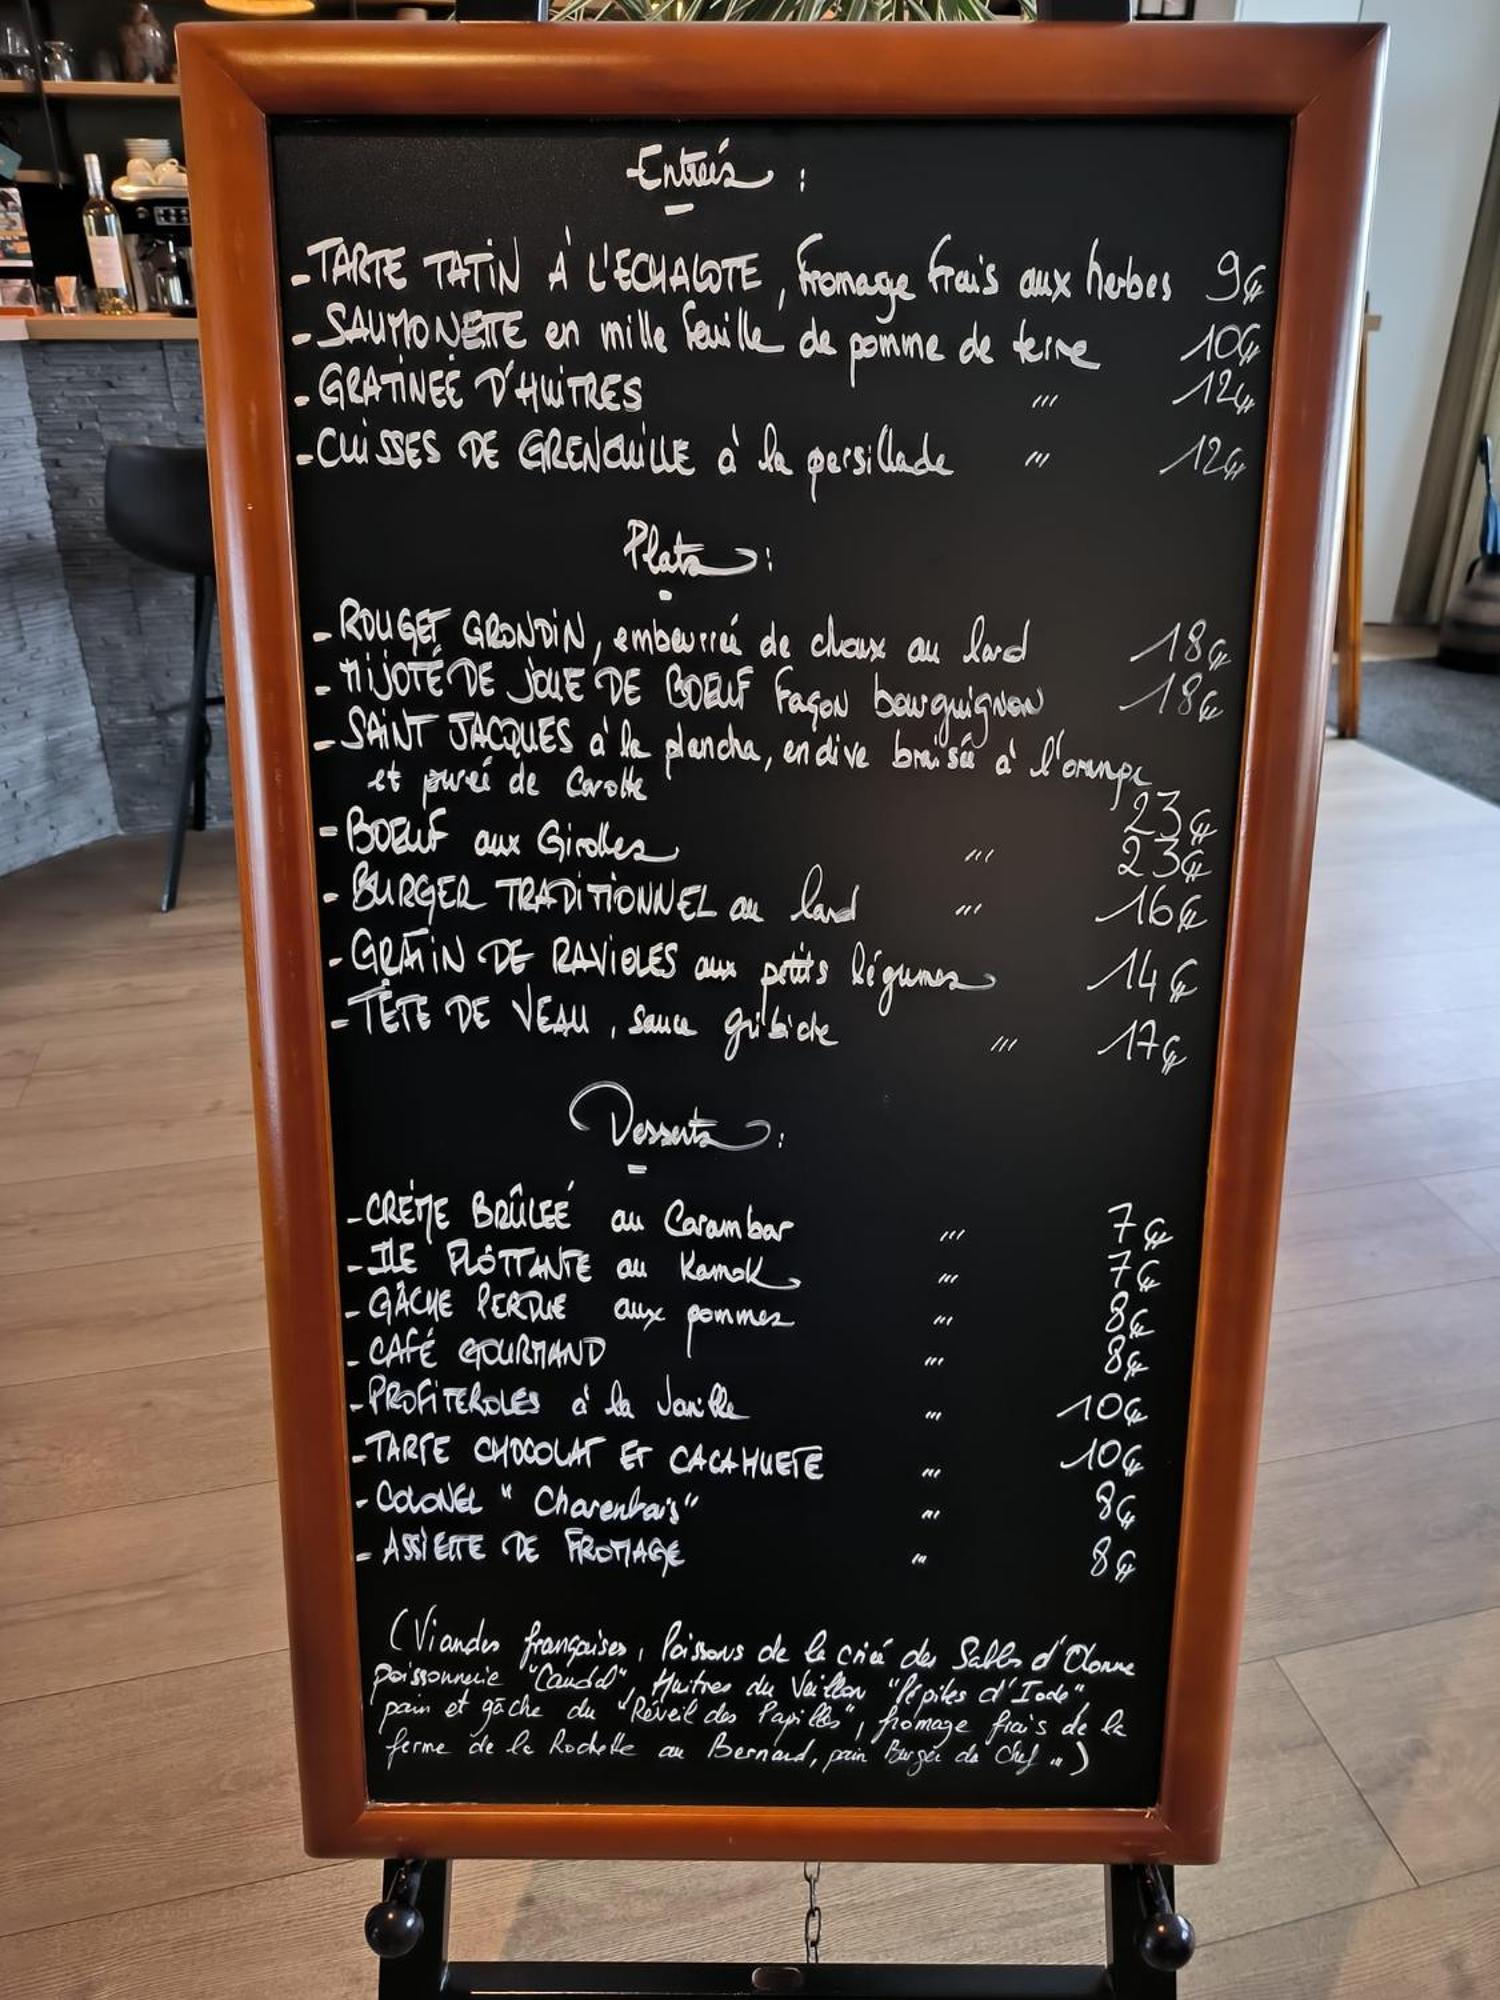 Entrées :
- TARTE TATIN À L'ECHALOTE, fromage frais aux herbes 9€
- SAUMONETTE en mille feuille de pomme de terre 10€
- GRATINEÉ D'HUITRES " 12€
- CUISSES DE GRENOUILLE à la persillade " 12€
Plats :
- ROUGET GRONDIN, embeurrée de choux au lard 18€
- MIJOTÉ DE JOUE DE BOEUF façon bourguignon 18€
- SAINT JACQUES à la plancha, endive braisée à l'orange
et purée de Carotte 23€
- BOEUF aux Girolles " 23€
- BURGER TRADITIONNEL au lard " 16€
- GRATIN DE RAVIOLES aux petits légumes 14€
- TÊTE DE VEAU, sauce gribiche " 17€
Desserts :
- CRÉME BRÛLEÉ au Carambar " 7€
- ILE FLOTTANTE au Kamok " 7€
- GÂCHE PERDUE aux pommes " 8€
- CAFÉ GOURMAND " 8€
- PROFITEROLES à la Vanille " 10€
- TARTE CHOCOLAT ET CACAHUETE " 10€
- COLONEL "Charentais" " 8€
- ASSIETTE DE FROMAGE " 8€
(Viandes françaises, Poissons de la criée des Sables d'Olonne
poissonnerie Huitres du Veillon "Pépites d'Iode"
pain et gâche du "Réveil des Papilles", fromage frais de la
ferme de la Rochette au Bernard, pain Burger du Chef ...)